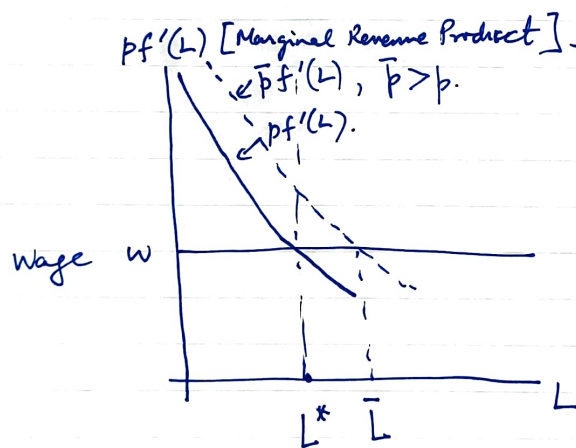 pf'(L) [Marginal Revenue Product].
p̄f'(L), p̄>p.
pf'(L).
Wage w
L
L* L̄